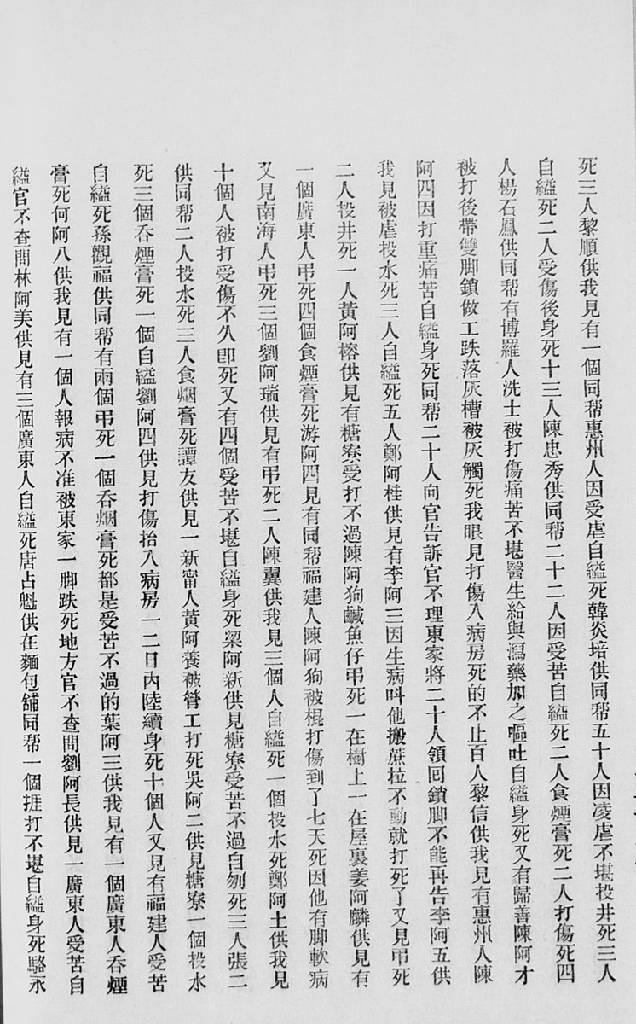 死三人黎順供我見有一個同帮惠州人因受虐自縊死韓炎培供同帮五十人因凌虐不堪投井死三人
自縊死二人受傷後身死十三人陳忠秀供同帮二十二人因受苦自縊死二人食煙膏死二人打傷死四
人楊石鳳供同帮有博羅人洗士被打傷痛苦不堪醫生給與瀉藥加之嘔吐自縊身死又有歸善陳阿才
被打後帶雙脚鎖做工跌落灰槽被灰觸死我眼見打傷入病房死的不止百人黎信供我見有惠州人陳
阿四因打重痛苦自縊身死同帮二十人向官告訴官不理東家將二十人領回鎖脚不能再告李阿五供
我見被虐投水死三人自縊死五人鄭阿桂供見有李阿三因生病呌他搬蔗拉不動就打死了又見弔死
二人投井死一人黃阿榕供見有糖寮受打不過陳阿狗鹹魚仔弔死一在樹上一在屋裏姜阿麟供見有
一個廣東人弔死四個食煙膏死游阿四見有同帮福建人陳阿狗被棍打傷到了七天死因他有脚軟病
又見南海人弔死三個劉阿瑞供見有弔死二人陳翼供我見三個人自縊死一個投水死鄭阿土供我見
十個人被打受傷不久即死又有四個受苦不堪自縊身死梁阿新供見糖寮受苦不過自刎死三人張二
供同帮二人投水死三人食烟膏死譚友供見一新甯人黃阿養被管工打死吳阿二供見糖寮一個投水
死三個吞煙膏死一個自縊劉阿四供見打傷抬入病房一二日內陸續身死十個人又見有福建人受苦
自縊死孫觀福供同帮有兩個弔死一個吞烟膏死都是受苦不過的葉阿三供我見有一個廣東人吞煙
膏死何阿八供我見有一個人報病不准被東家一脚跌死地方官不查問劉阿長供見一廣東人受苦自
縊官不查問林阿美供見有三個廣東人自縊死唐占魁供在麵包舖同帮一個捱打不堪自縊身死駱永